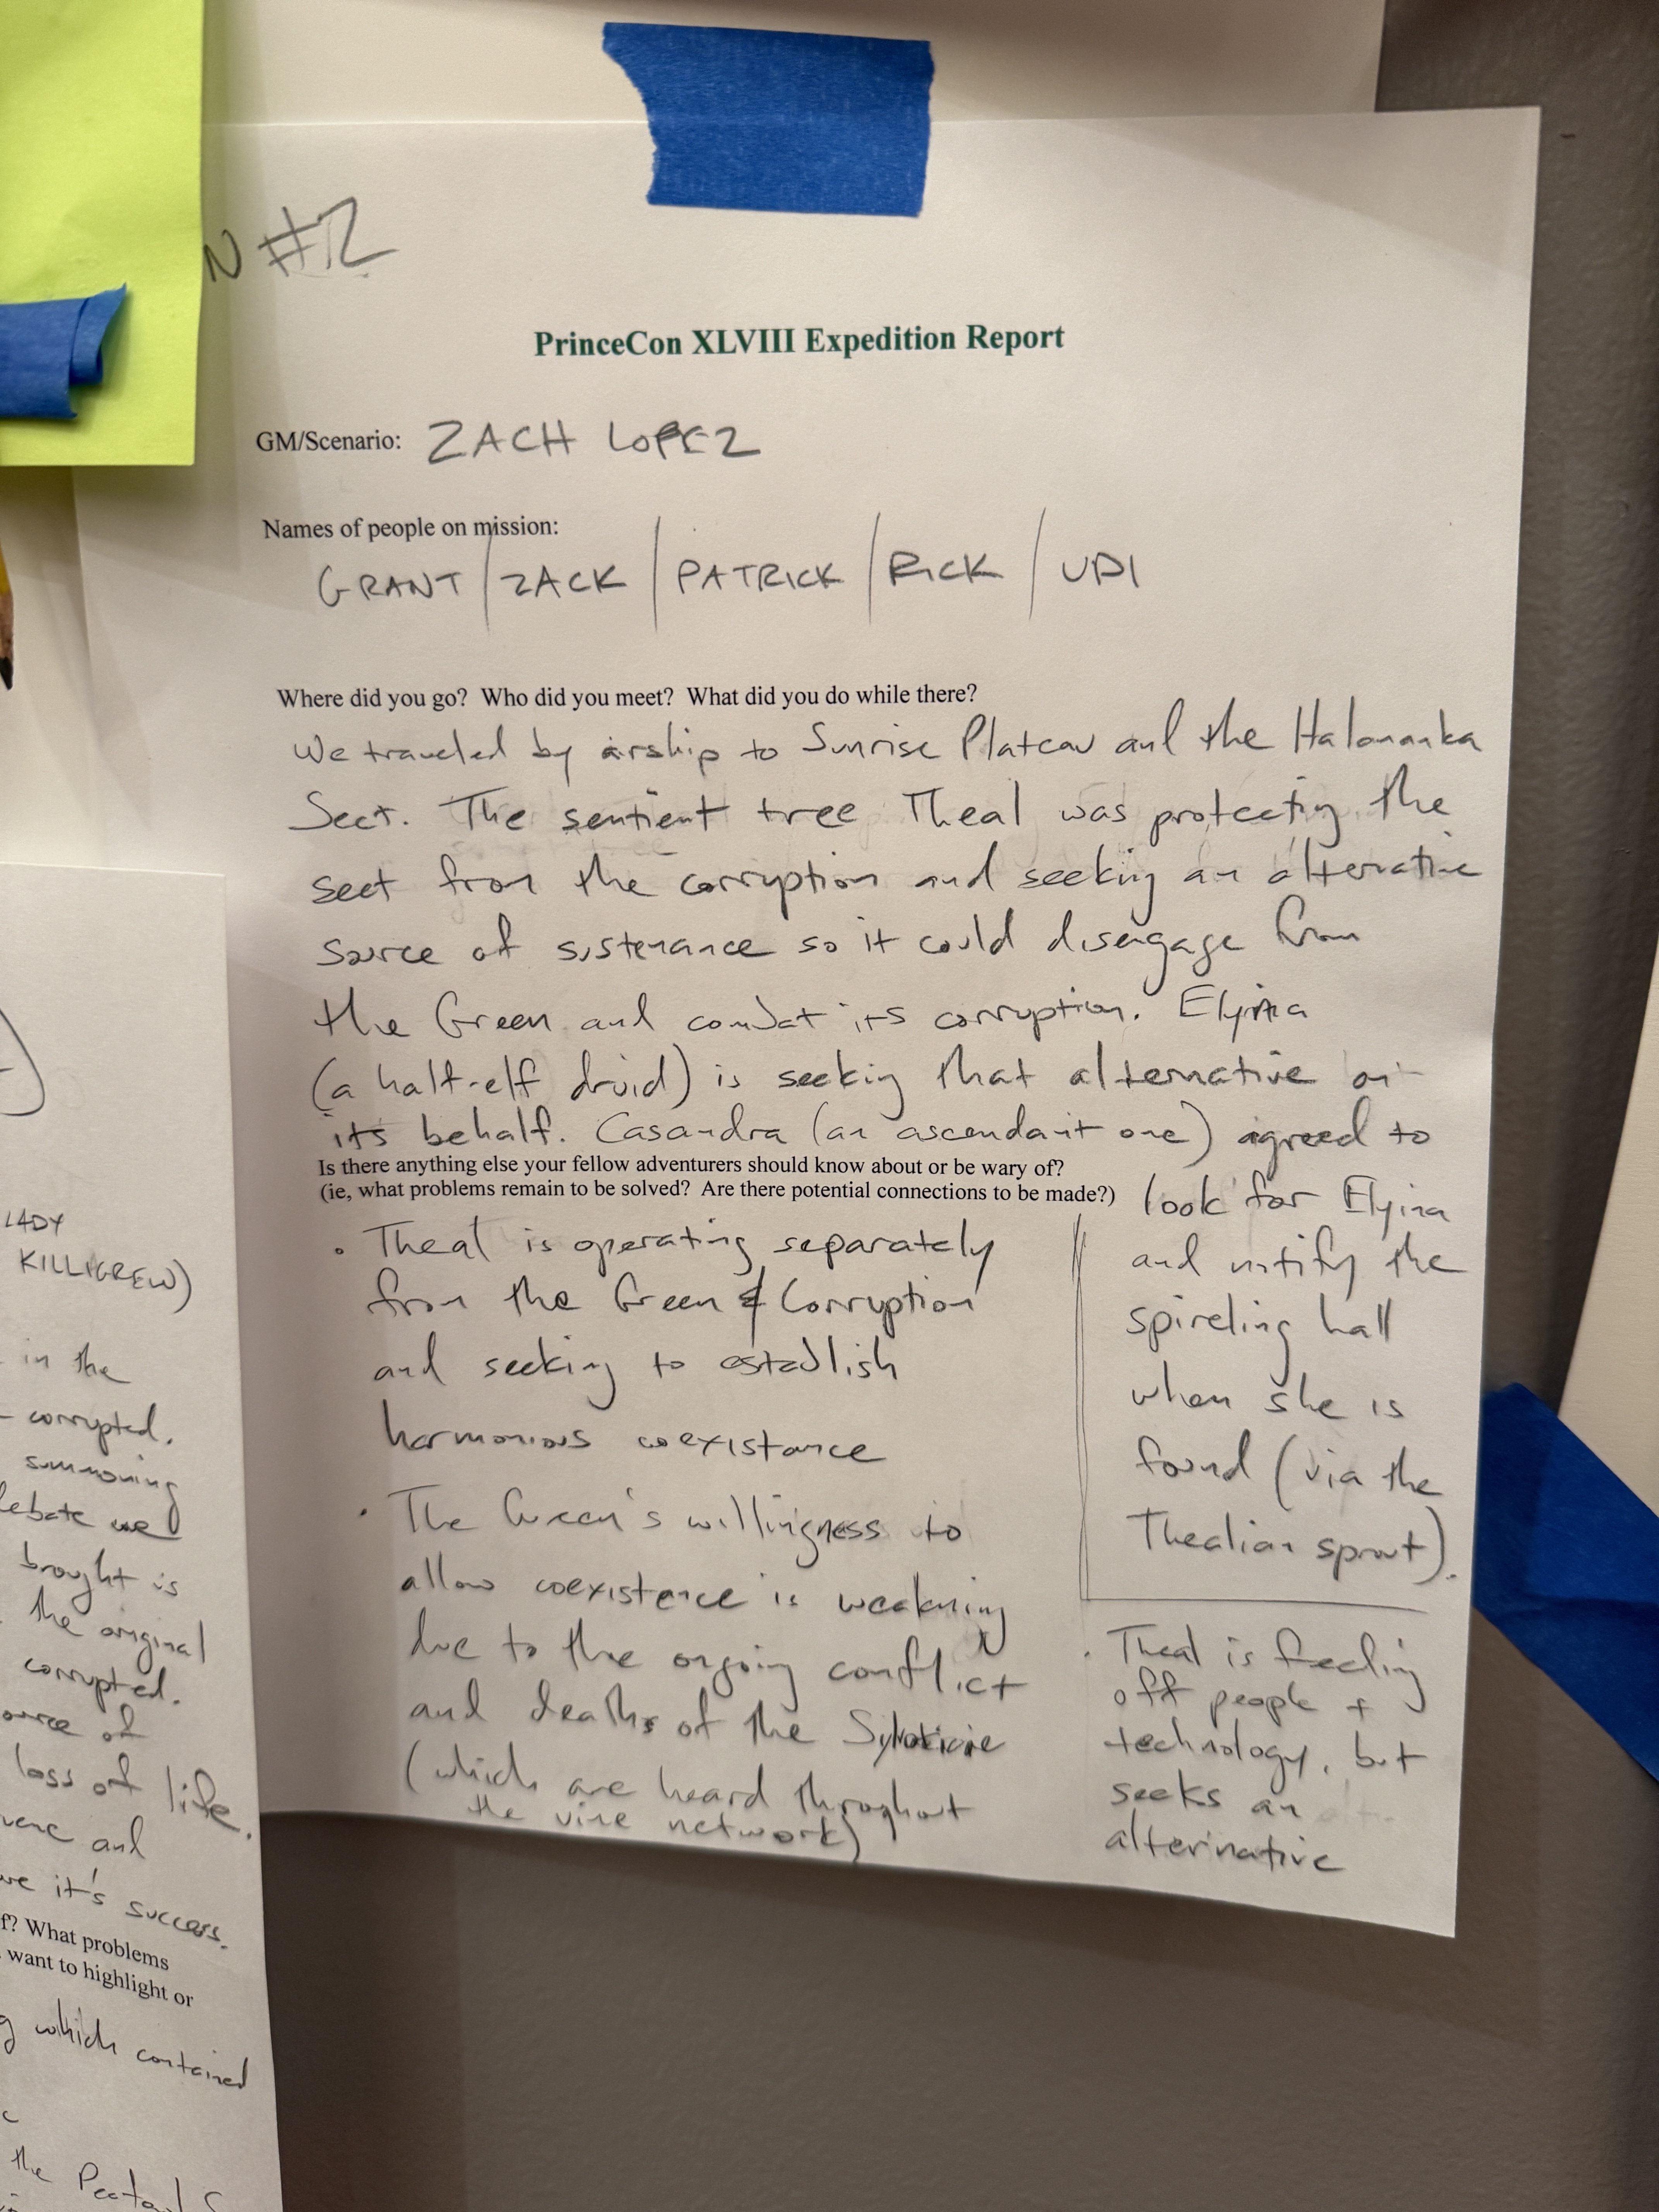 N #2
PrinceCon XLVIII Expedition Report
GM/Scenario: ZACH LOPEZ
Names of people on mission:
GRANT / ZACK / PATRICK / RICK / UDI
Where did you go? Who did you meet? What did you do while there?
We traveled by airship to Sunrise Plateau and the
Sect. The sentient tree Theal was protecting the
sect from the corruption and seeking an alternative
source of sustenance so it could disengage from
the Green and combat its corruption. Elyina
(a half-elf druid) is seeking that alternative on
its behalf. Casandra (an ascendant one) agreed to
look for Elyina
and notify the
spireling hall
when she is
found (via the
Thealian sprout).
Is there anything else your fellow adventurers should know about or be wary of?
(ie, what problems remain to be solved? Are there potential connections to be made?)
• Theal is operating separately
from the Green & Corruption
and seeking to establish
harmonious coexistance
• The Green's willingness to
allow coexistence is weakening
due to the ongoing conflict
and deaths of the
(which are heard throughout
the vine network)
• Theal is feeding
off people +
technology, but
seeks an
alternative
LADY
KILLIGREW)
in the
corrupted.
summoning
debate we
brought is
the original
corrupted.
of
loss of life.
and
it's success.
f? What problems
want to highlight or
which contained
the